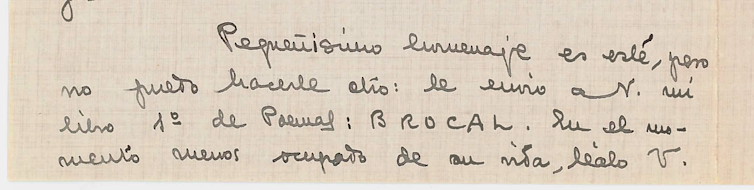 Pequeñísimo homenaje es esté, pero
no puedo hacerle otro: le envio a V. mi
libro 1º de Poemas: BROCAL. En el mo-
mento menos ocupado de su vida, léalo V.